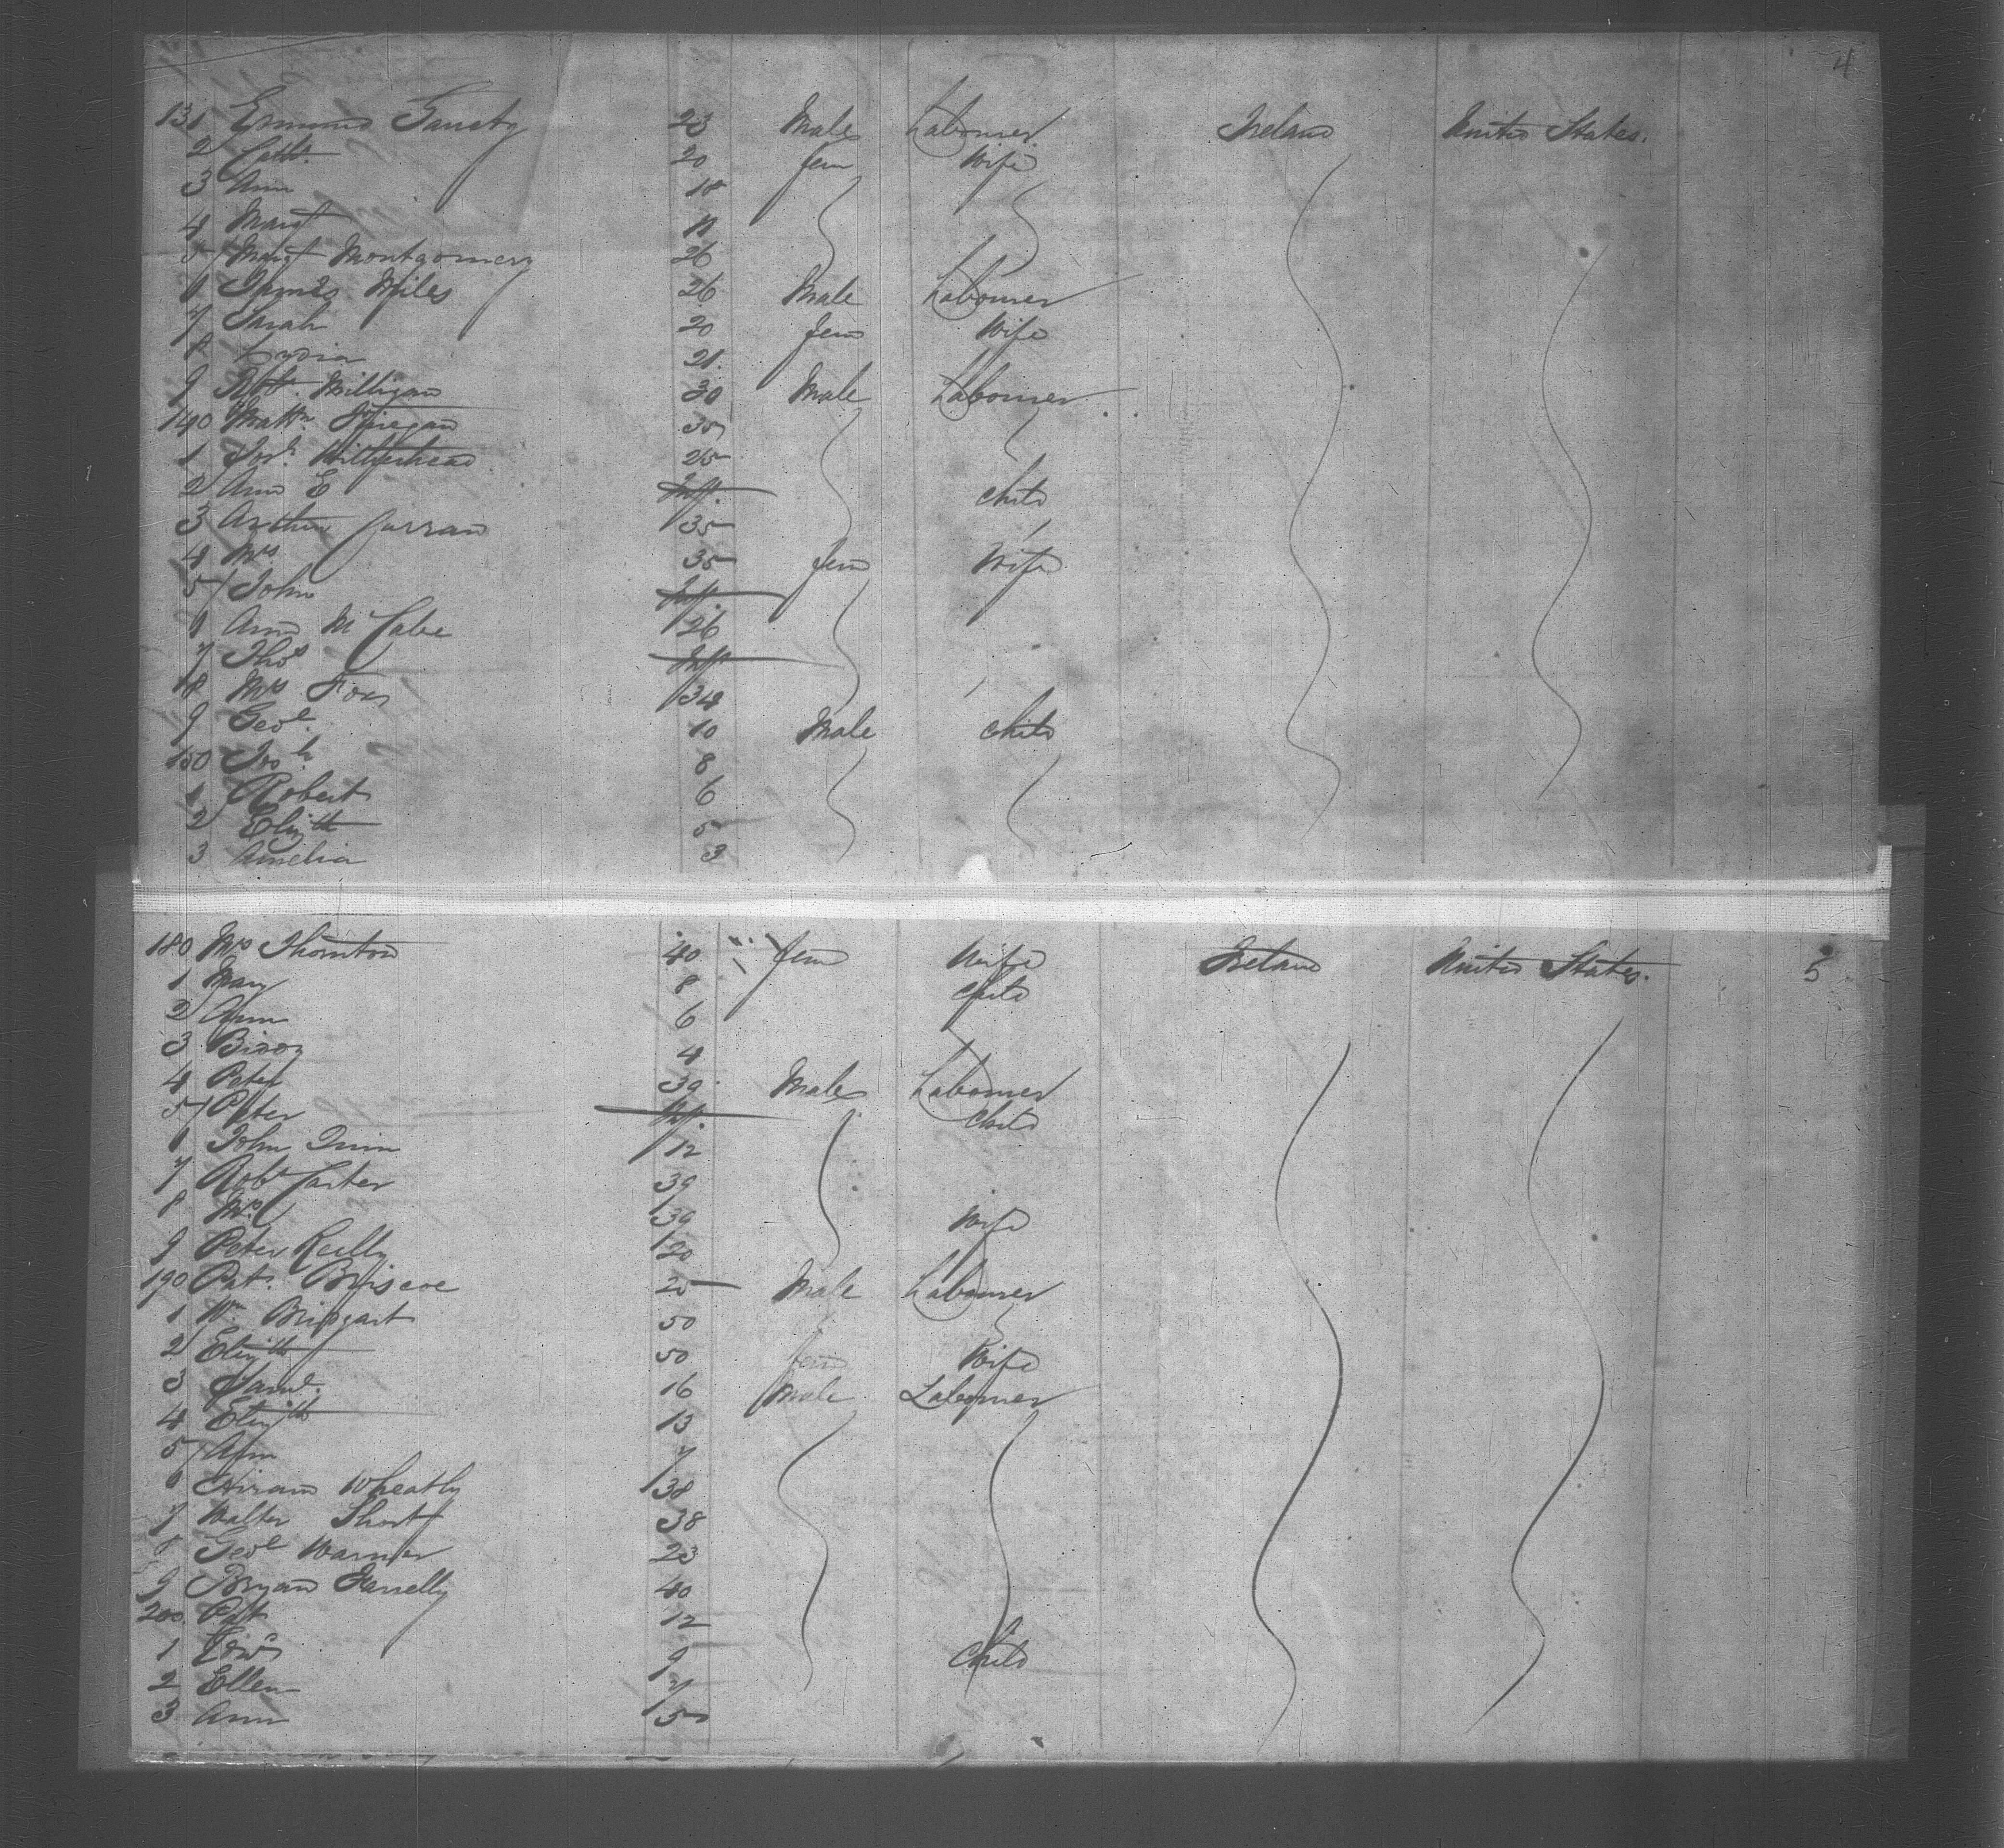 4
131 Edmund 23 Male Labourer Ireland United States.
2 Cath. 20 fem Wife
3 Ann 18
4 Margt 11
5 Margt Montgomery 26
6 James Miles 26 Male Labourer
7 Sarah 20 fem Wife
8 Lydia 21.
9 Robt. Milligan 30 Male Labourer
140 Matw. Finegan 35
1 Josh. 25
2 Ann E Inft. Child
3 Arthur Curran 35
4 Mrs 35 fem Wife
5 John Inft.
6 Ann McCabe 26
7 Thos Inft
8 Mrs Fox 34
9 Geoe. 10 Male Child
150 Josh. 8
1 Robert 6
2 Elizth 5
3 Amelia 3
180 Mrs Thornton 40 fem Wife Ireland United States. 5
1 Mary 8 Child
2 Ann 6
3 Biddy 4
4 Peter 39 Male Labourer
5 Peter Inft. Child
6 John Quin 12
7 Robt Carter 39
8 Mrs. 39 Wife
9 Peter Reilly 20
190 Pat. Briscoe 25 Male Labourer
1 Wm 50
2 Elizth 50 fem Wife
3 Saml. 16 Male Labourer
4 Elizth 13
5 Ann 7
6 Hiram Wheatly 38
7 Walter Short 38
8 Geoe Warner 23
9 Bryan Farrelly 40
200 Pat 12
1 Edwd 9 Child
2 Ellen 7
3 Ann 5